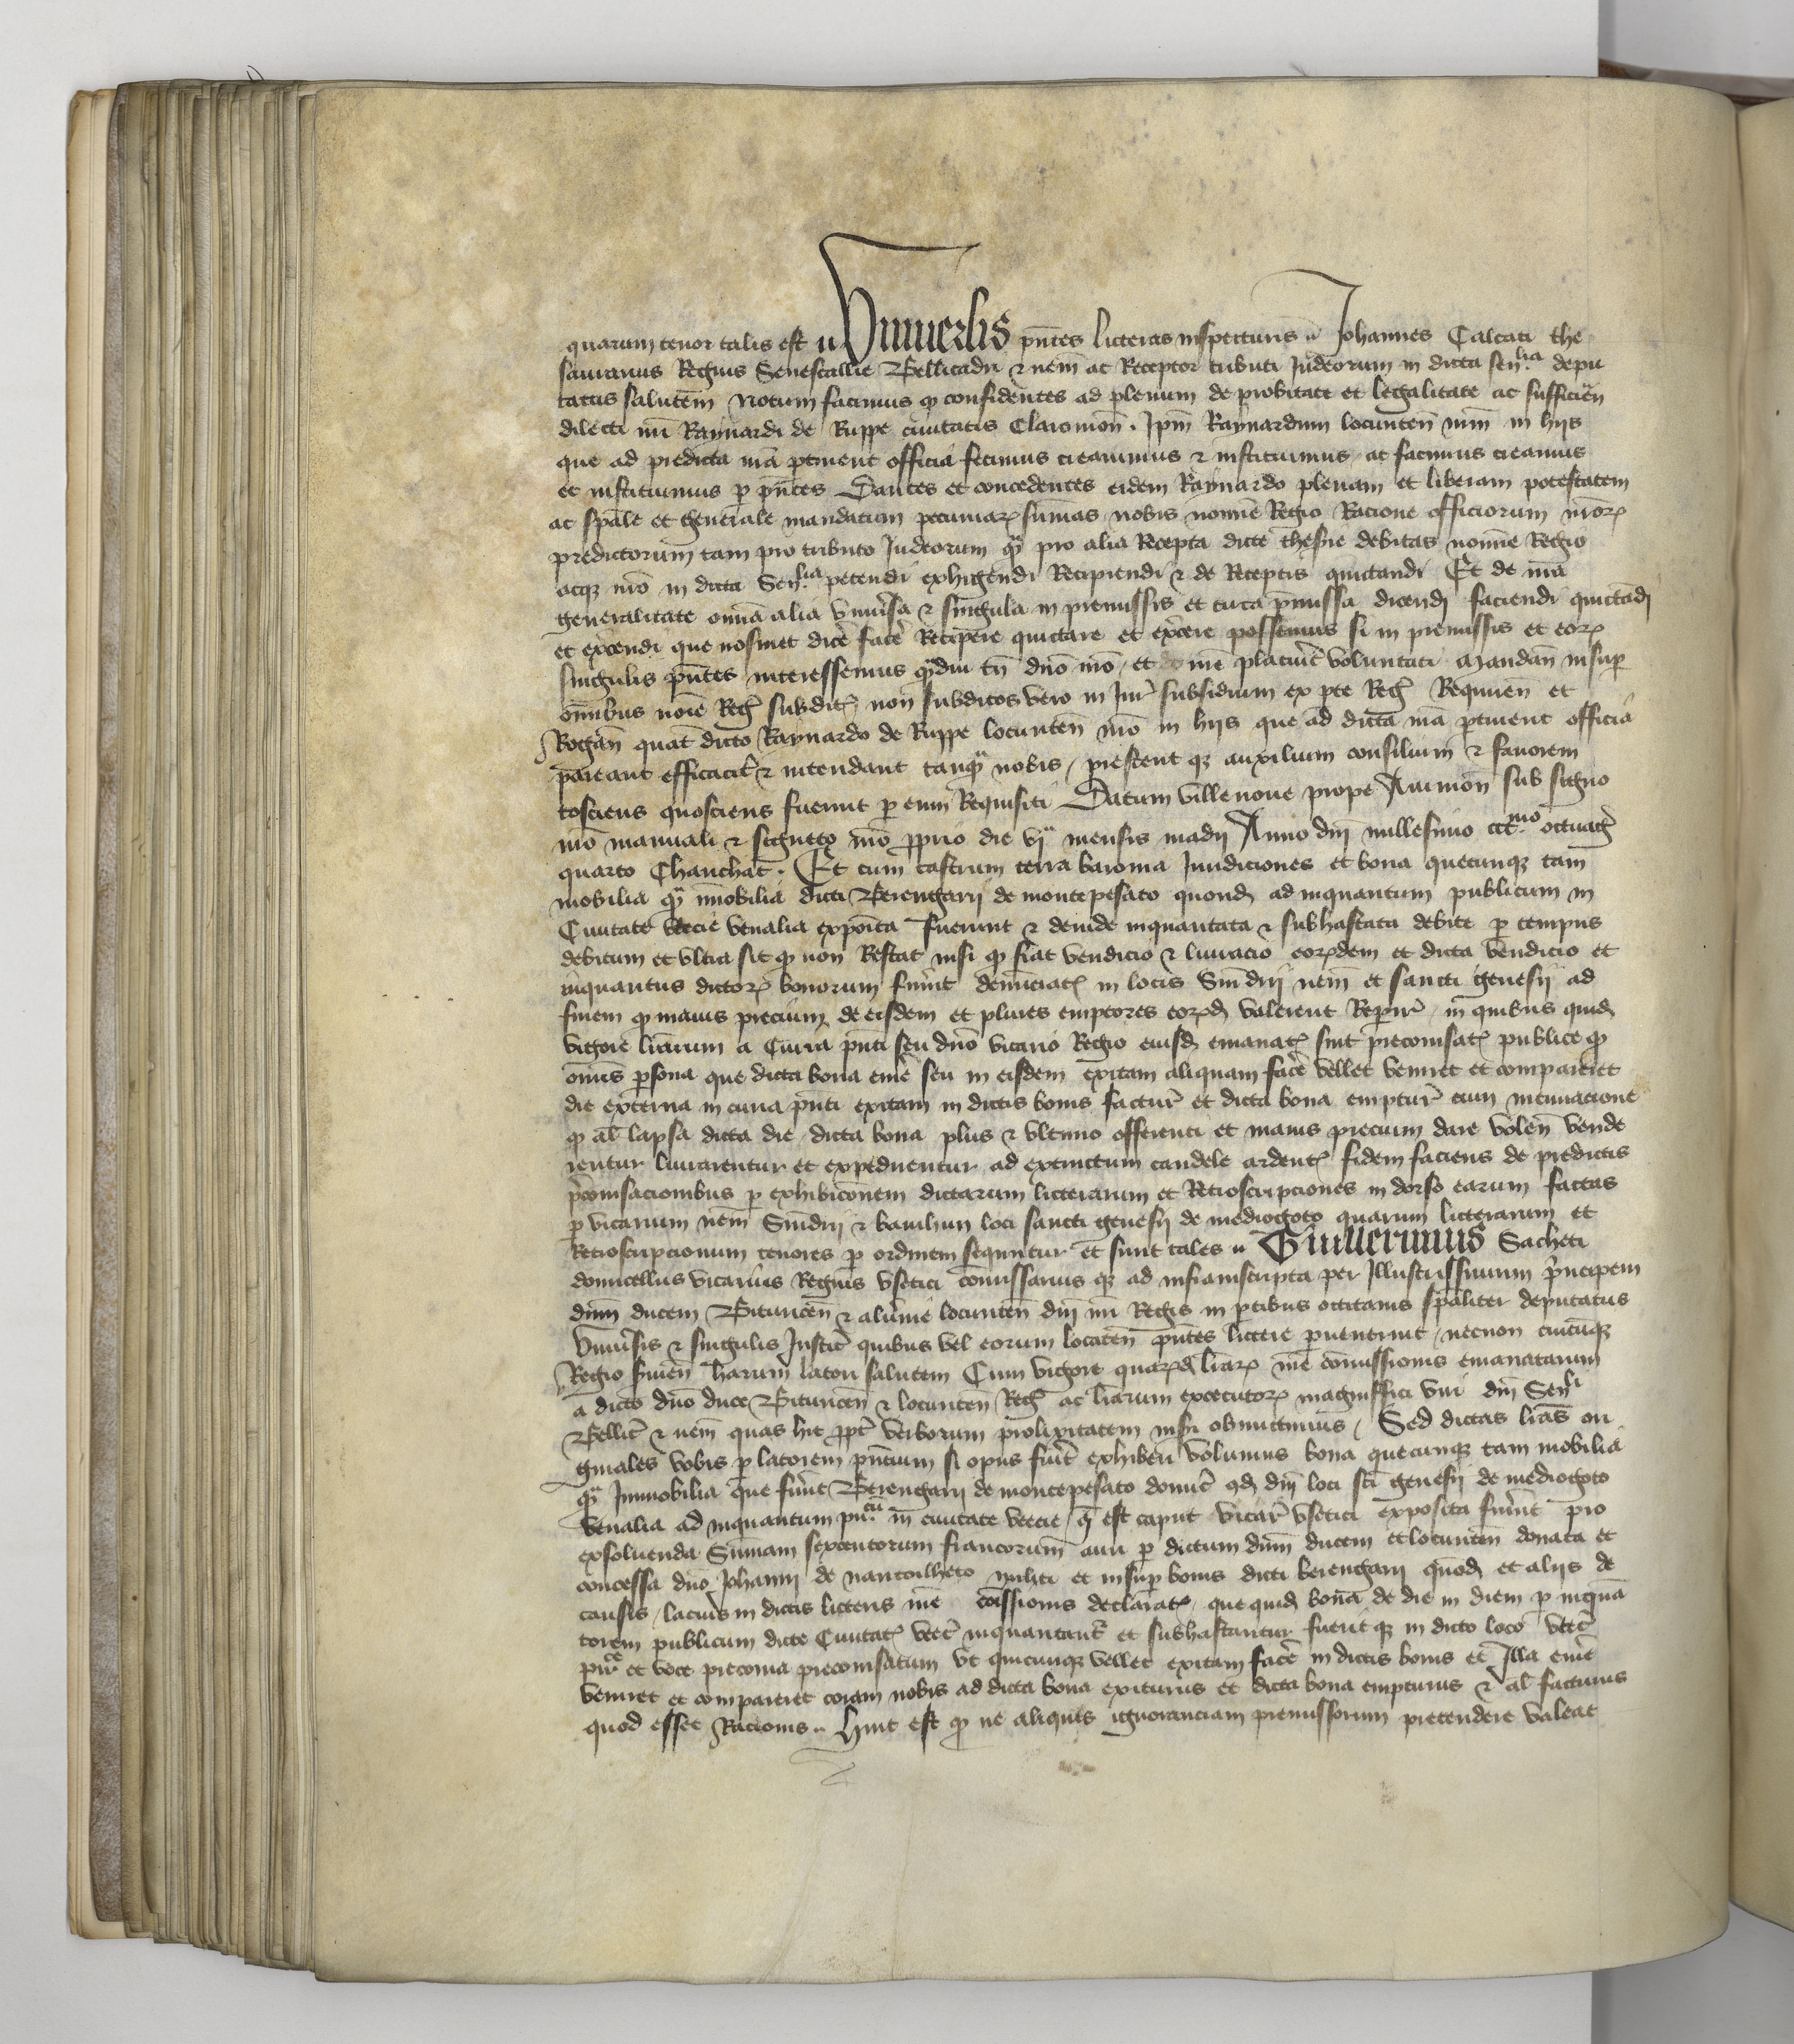 quarum tenor talis est .. Vniuersis pñtes litteras inspecturis .. Johannes Calcati the
saurarius Regius Senescallie Bellicadri & nem̃ ac Receptor tributi Judeorum in dicta sen.lia depu
tatus salutem Notum facimus qp confidentes ad plenum de probitate et legalitate ac sufficien̄
dilecti nr̃i Raynardi de Ruppe ciuitatis Claromon̄ . Ipm̄ Raynardum locumten̄ nr̃m in hijs
que ad predicta nr̃a ptinent officia fecimus creauimus & instituimus ac facimus creamus
et instituimus p pñtes Dantes et concedentes eidem Raynardo plenam et liberam potestatem
ac spãle et generale mandatum pecuniarꝝ sum̄as nobis nomĩe Regio Racione officiorum nr̃orꝝ
predictorum tam pro tributo Judeorum qᵃ pro alia Recepta dicte thesrie debitas nomĩe Regio
atqz nr̃o in dicta Sen.lia petendi exhigendi Recipiendi & de Receptis quictandi Et de nr̃a
generalitate om̃ia alia vniũsa & singula in premissis et circa p̃missa dicendi faciendi quictãdi
et ex̃cendi que nosmet dicẽ facẽ Recipere quictare et ex̃cere possemus si in premissis et eorꝝ
singulis p̃ntes interessemus qᵃdiu tñ dño nr̃o et nr̃e placuẽt voluntati Mandan̄ insup
om̃ibus noĩe Reg̃ subditꝭ non subditos vero in Jur̃ subsidium ex pte Reg̃ Requiren̄ et
Rogan̄ quat̃ dicto Raynardo de Ruppe locumten̄ nr̃o in hijs que ad dicta nr̃a ptinent officia
pareant efficacit̃ & intendant tanqᵃ nobis / prestent qz auxilium consilium & fauorem
tosciens quosciens fuerint p eum Requisiti Datum villenoue prope Auinion̄ sub signo
nr̃o manuali & signeto nr̃o pprio die vjᵃ mensis madij Anno dñi millesimo cccmo octuag̃
quarto Chauchat . Et cum castrum terra baronia Juridiciones et bona quecunqz tam
mobilia qᵃ im̃obilia dicti Berengarij de montepesato quond ad inquantum publicum in
Ciuitate vcecie venalia exposita fuerunt & deinde inquantata & subhastata debite p tempus
debitum et vltra sit qp non Restat nisi qp fiat vendicio & liuracio eorꝝdem et dicta vendicio et
inquantus dictorꝝ bonorum fuer̃int denunciatꝭ in locis Sum̄drij nem̃ et sancti genesij ad
finem qp maius precium de eisdem et plures emptores eorꝝd valerent Reperir̃ / in quibus quid
vigore lr̃arum a Curia p̃nti seu dño vicario Regio eiusd emanatꝭ sint preconisatꝭ publice qp
om̃is psona que dicta bona emẽ seu in eisdem exitam aliquam facẽ vellet veniret et compareret
die externa in curia p̃nti exitam in dictis bonis factur̃ et dicta bona emptur̃ cum intimacione
qp al̃ lapsa dicta die dicta bona plus & vltimo offerenti et maius precium dare volen̄ vende
rentur liurarentur et expedirentur ad extinctum candele ardentꝭ fidem faciens de predictis
p̃conisacionibus p exhibic̃onem dictarum litterarum et Retroscripciones in dorso earum factas
p vicarium nem̃ Sum̄drij & baiulum loci sancti genesij de mediogoto quarum litterarum et
Retroscripcionum tenores p ordinem sequntur et sunt tales .. Guillermus Sacheti
domicellus vicarius Regius vsetici com̃issarius qz ad infrascripta per Illustrissimum p̃ncipem
dñm ducem Bituricen̄ & aluernie locumten̄ dñi nr̃i Regis in ptibus occitanis spãliter deputatus
Vniũsis & singulis Justic̃ quibus vel eorum locaten̄ p̃ntes littere peruenerint / necnon cuicũqz
Regio seruien̄ harum latori salutem Cum vigore quarꝝd lr̃arꝝ nr̃e com̃issionis emanatarum
a dicto dño duce Bituricen̄ & locumten̄ Reg̃ ac lr̃arum executorꝝ magniffici viri dñi Senli
Bellic̃ & nem̃ quas hic ppt̃ verborum prolixitatem inseri obmictimus / Sed dictas lr̃as ori
ginales vobis p latorem p̃ncium si opus fuẽt exhiberi volumus bona quecunqz tam mobilia
qᵃ Immobilia que fuer̃int Berengarij de montepesato domic̃ qd dñi loci sc̃i genesij de mediogoto
venalia ad inquantum pu.cũ in ciuitate vcecie q̃ est caput vicar̃ vsetici exposita fuer̃int pro
exsoluenda Sum̄am sexcentorum francorum auri p dictum dñm ducem et locumten̄ donata et
concessa dño Johanni de nantoilheto militi et insup bonis dicti berengarij quõd et alijs de
causis / lacius in dictis litteris nr̃e com̃issionis declaratꝭ / que quid bona de die in diem p inquã
torem publicum dicte Ciuitatꝭ vcec̃ inquantant̃ et subhastantur fuerit qz in dicto loco vcec̃
pu.ce et voce preconia preconisatum vt quicunqz vellet exitam facẽ in dictis bonis et Illa emẽ
veniret et compareret coram nobis ad dicta bona exiturus et dicta bona empturus & al̃ facturus
quod esset Racionis .. Hinc est qp ne aliquis ignoranciam premissorum pretendere valeat